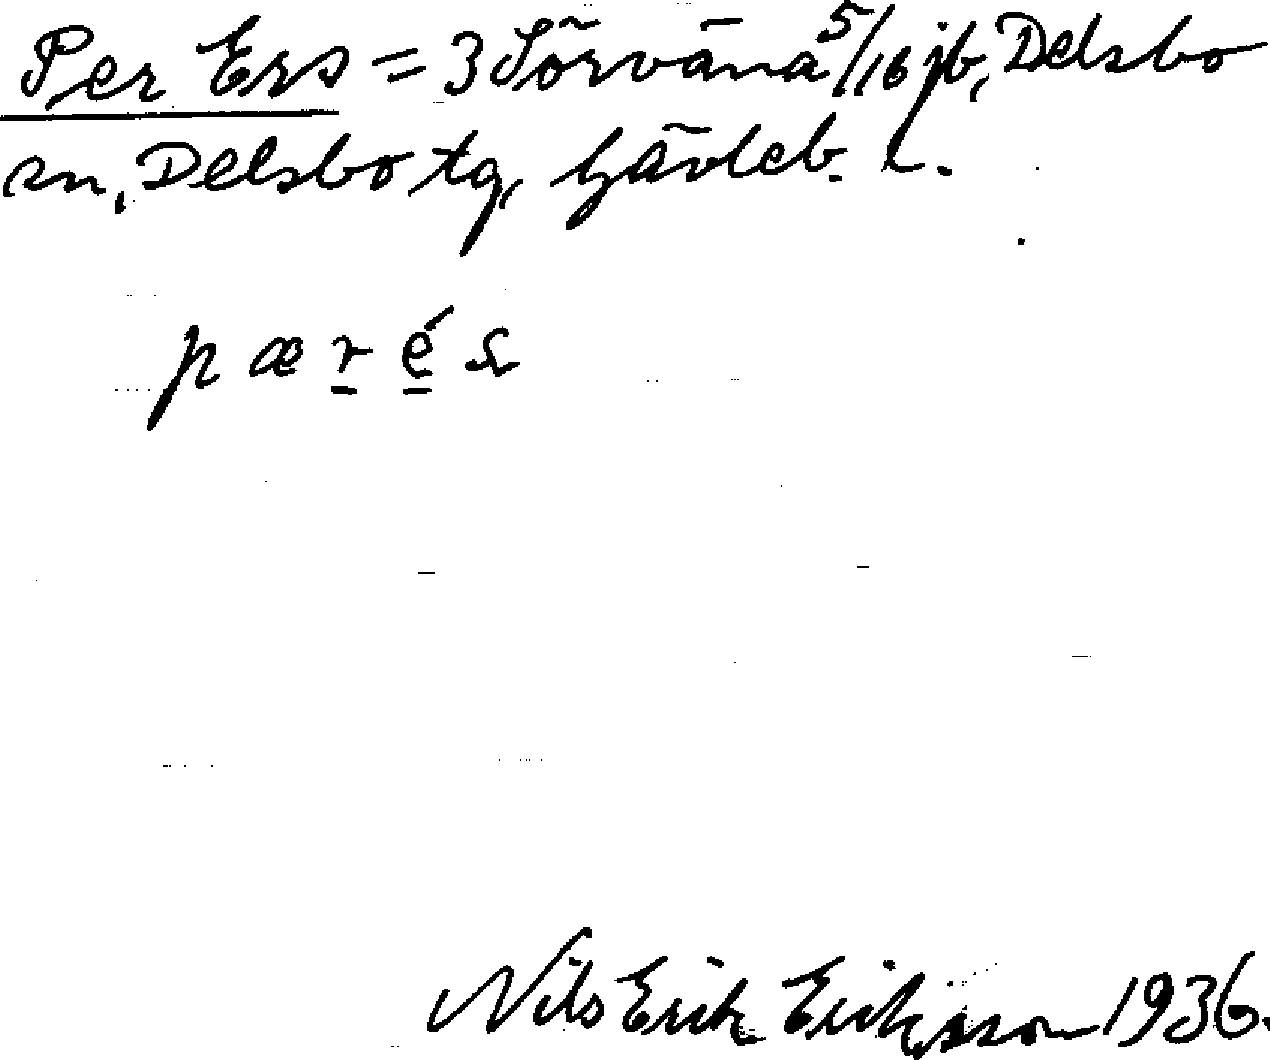 Per Ers = 3 Sörväna 5/16 jb, Delsbo
sn, Delsbo tg, Gävleb. l.
pæré s
Nils Erik Eriksson 1936.